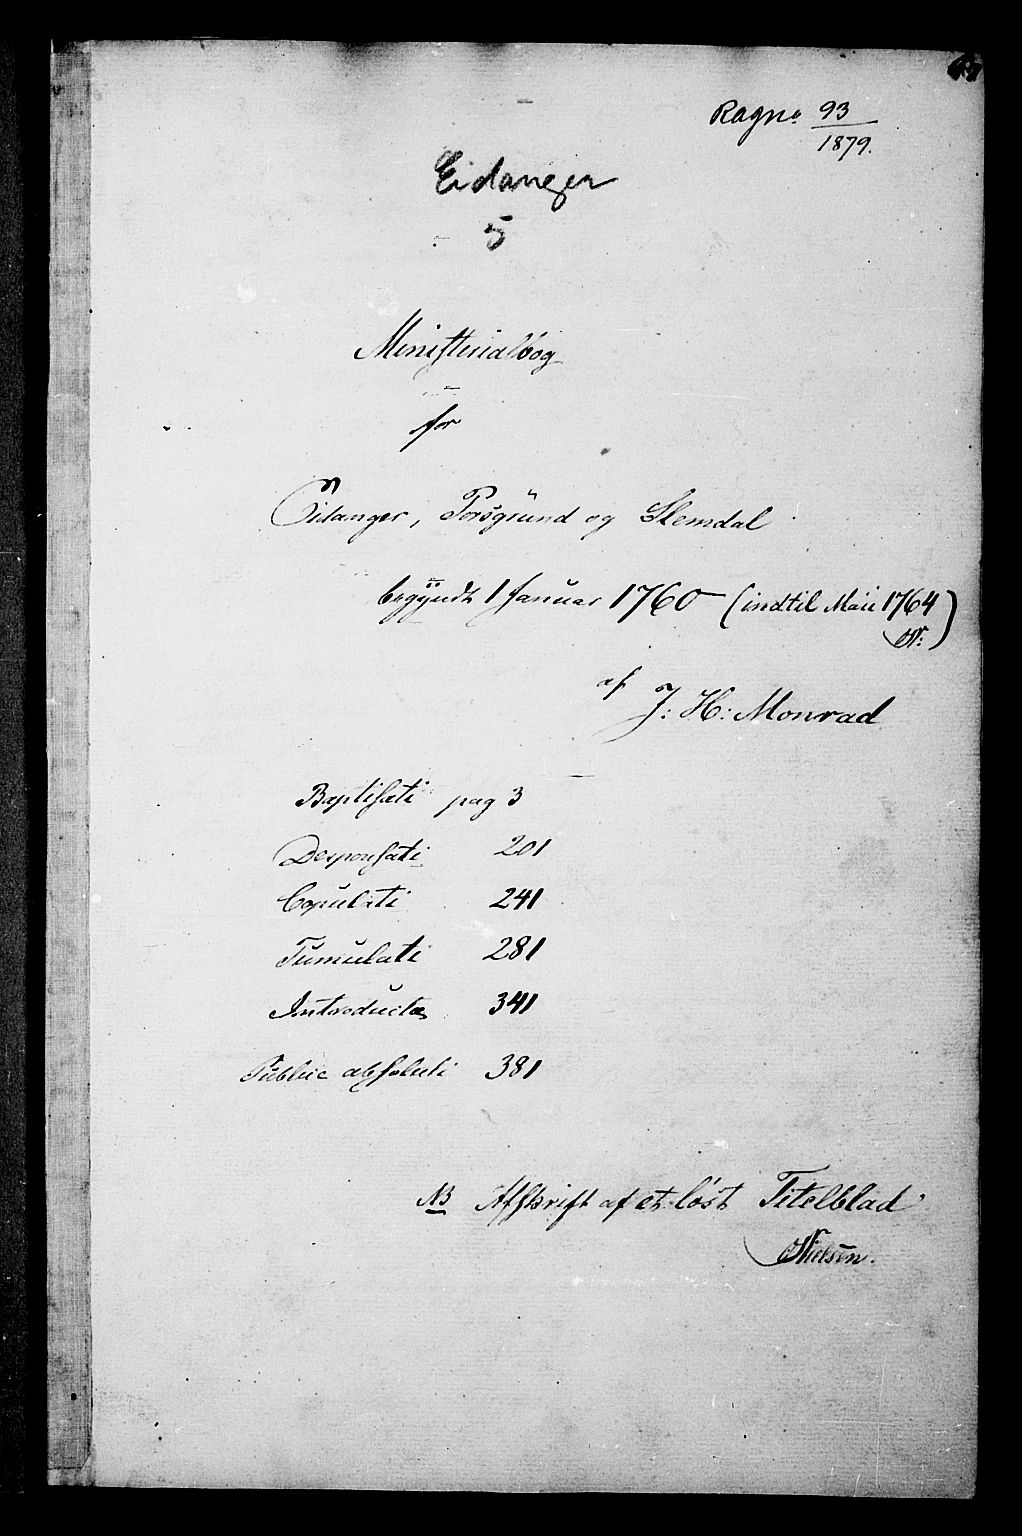 Ragno 93
1879.
Eidanger
5
Ministerialbog
for
Eidanger, Porsgrund og Slemdal
begyndt 1 Januar 1760 (indtil Maii 1764
N:)
af J: H: Monrad
Baptisati pag 3
Desponsati 201
Copulati 241
Tumulati 281
Introductæ 341
Public absoluti 381
NB Afskrift af et löst Titelblad
Nielsen.